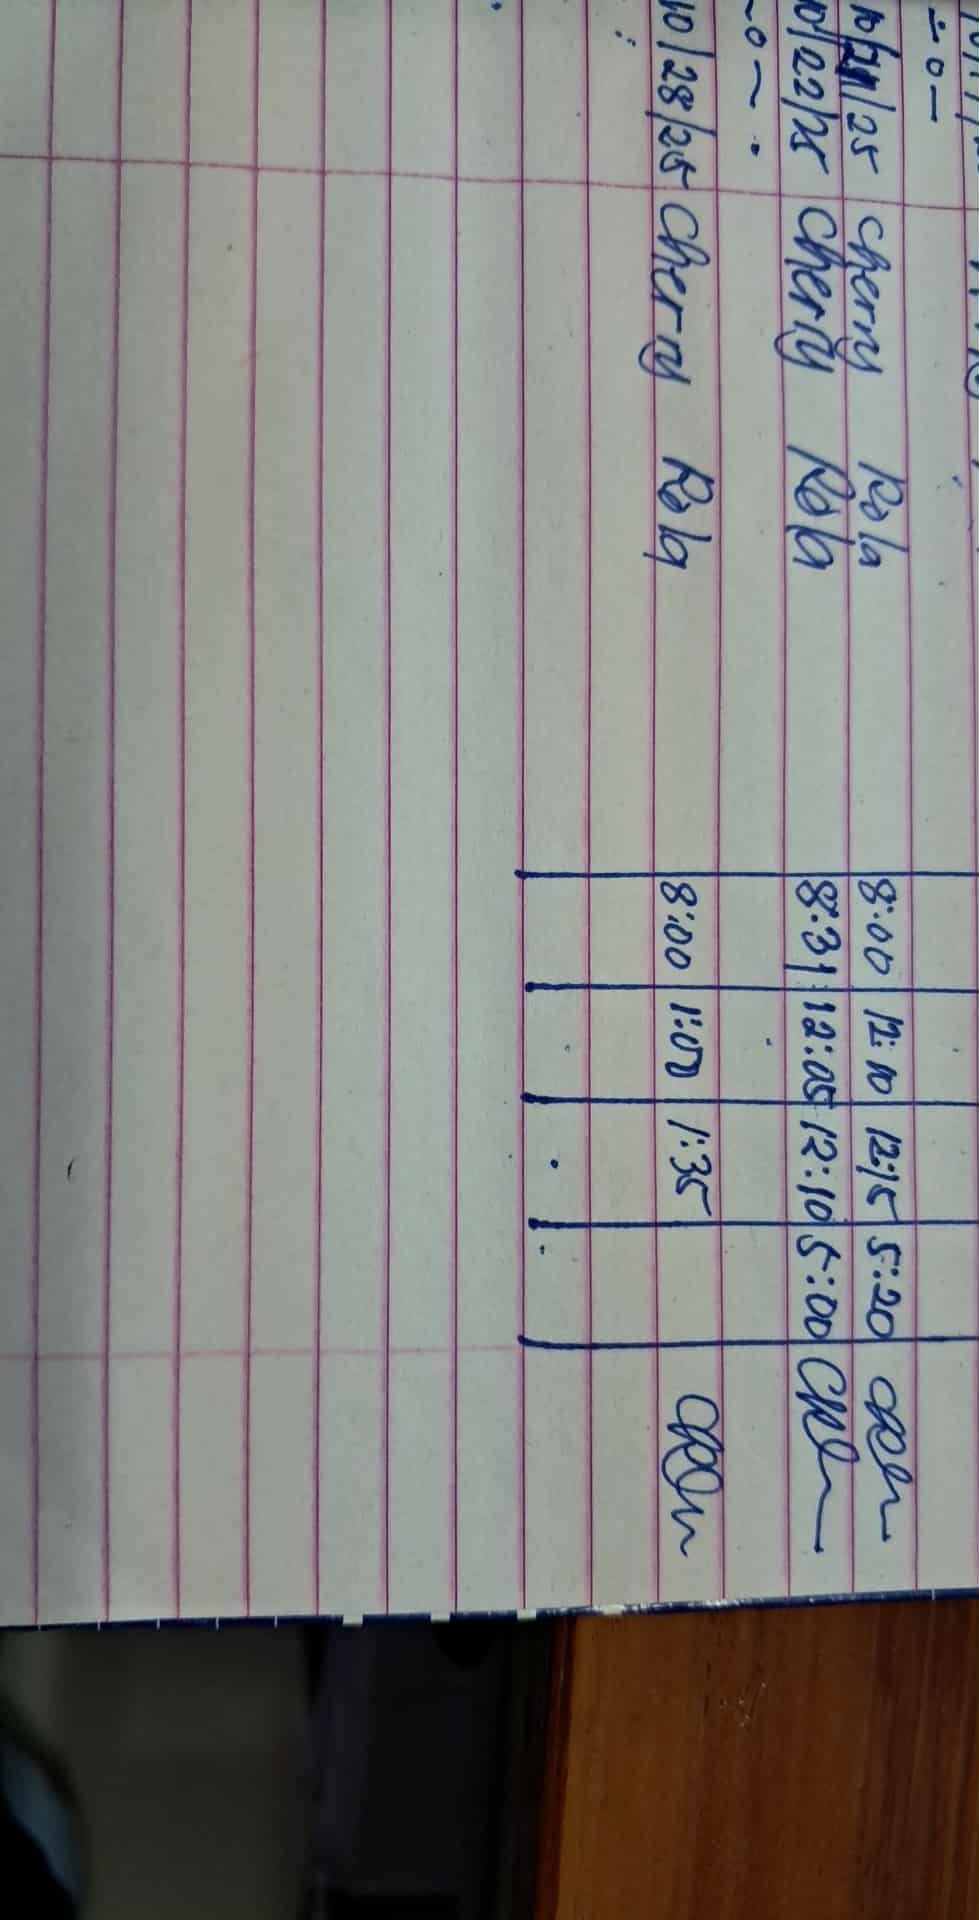 ÷ o —
10/21/25 Cherry Rola 8:00 12:10 12:15 5:20
10/22/25 Cherry Rola 8:31 12:05 12:10 5:00
~ o ~ .
10/28/25 Cherry Rola 8:00 1:00 1:35